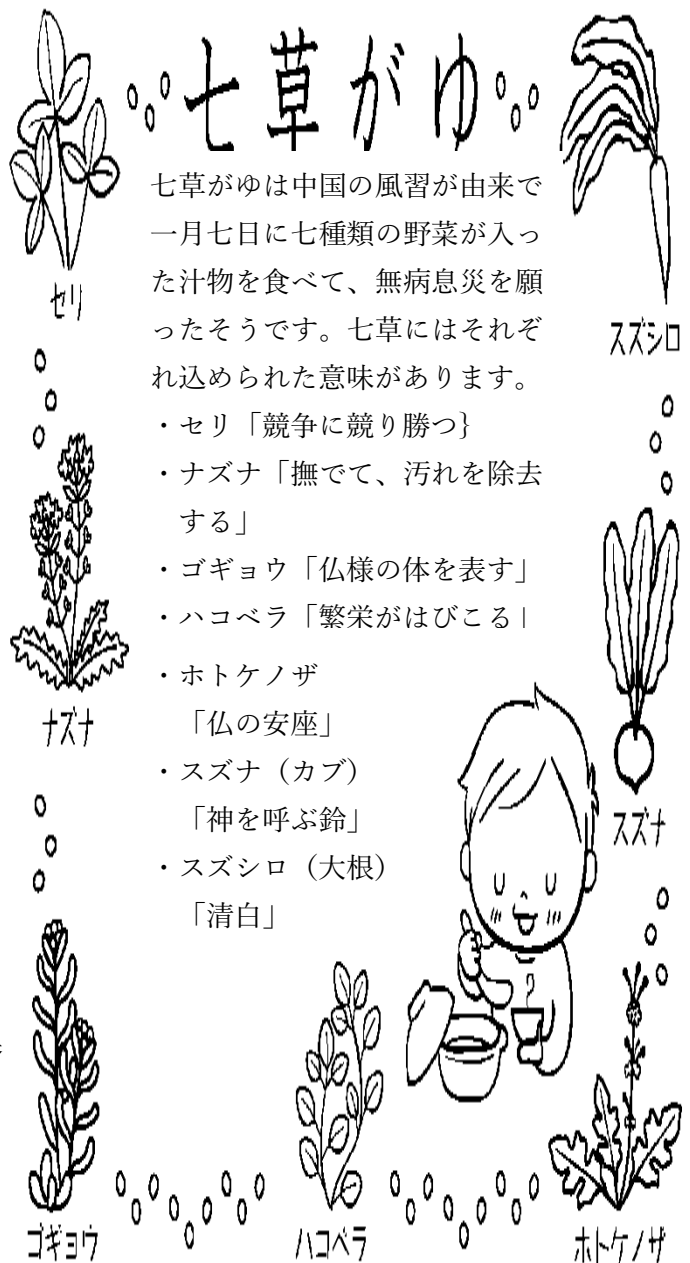 七草がゆ
七草がゆは中国の風習が由来で
一月七日に七種類の野菜が入っ
た汁物を食べて、無病息災を願
ったそうです。七草にはそれぞ
れ込められた意味があります。
・セリ「競争に競り勝つ}
・ナズナ「撫でて、汚れを除去
する」
・ゴギョウ「仏様の体を表す」
・ハコベラ「繁栄がはびこる」
・ホトケノザ
「仏の安座」
・スズナ（カブ）
「神を呼ぶ鈴」
・スズシロ（大根）
「清白」
セリ
ナズナ
ゴギョウ
ハコベラ
ホトケノザ
スズナ
スズシロ